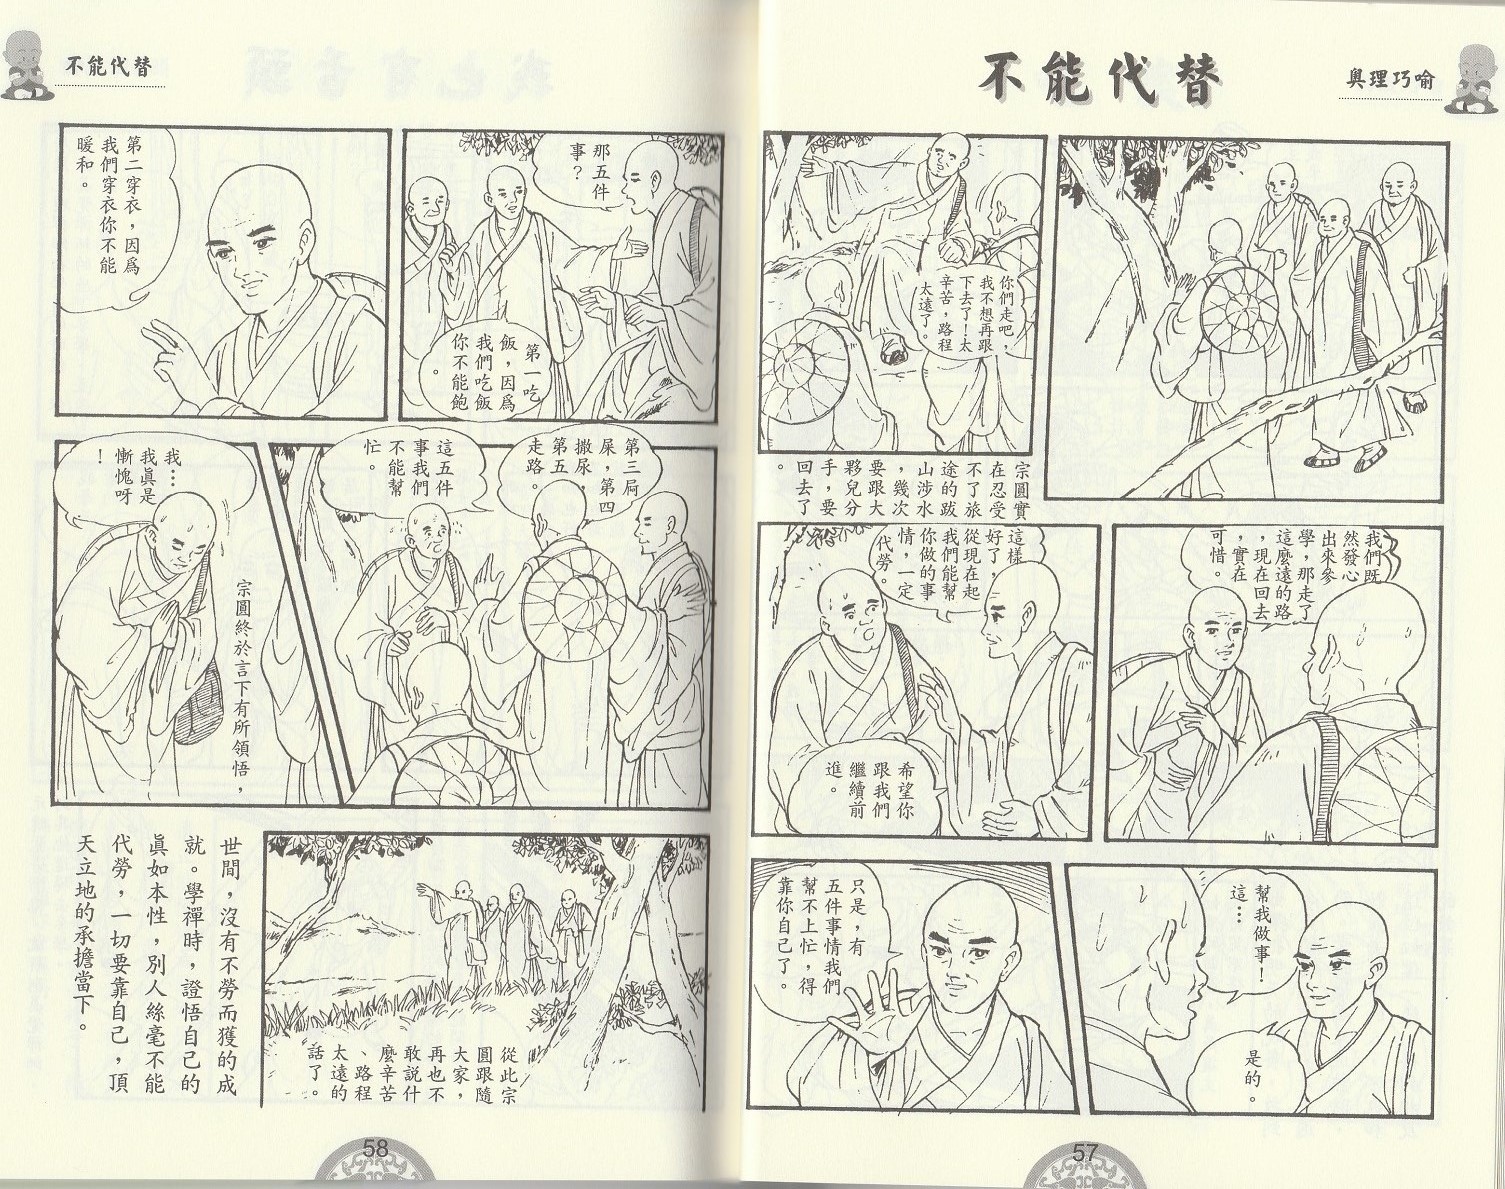 奧理巧喻
不能代替
你們走吧，
我不想再跟
下去了！太
辛苦，路程
太遠了。
宗圓實
在忍受
不了旅
途的跋
山涉水
，幾次
要跟大
夥兒分
手，要
回去了
。
我們既
然發心
出來參
學，那走了
這麼遠的路
，現在回去
，實在
可惜。
這樣
好了，
從現在起
我們能幫
你做的事
情，一定
代勞。
希望你
跟我們
繼續前
進。
幫我做事！
這…
是的。
只是，有
五件事情我們
幫不上忙，得
靠你自己了。
57
不能代替
那五件
事？
第一吃
飯，因爲
我們吃飯
你不能飽
。
第二穿衣，因爲
我們穿衣你不能
暖和。
第三屙
屎，第四
撒尿，
第五，
走路。
這五件
事我們
不能幫
忙。
我…
我眞是
慚愧呀
！
宗圓終於言下有所領悟，
從此宗
圓跟隨
大家，
再也不
敢說什
麼辛苦
、路程
太遠的
話了。
世間，沒有不勞而獲的成
就。學禪時，證悟自己的
眞如本性，別人絲毫不能
代勞，一切要靠自己，頂
天立地的承擔當下。
58